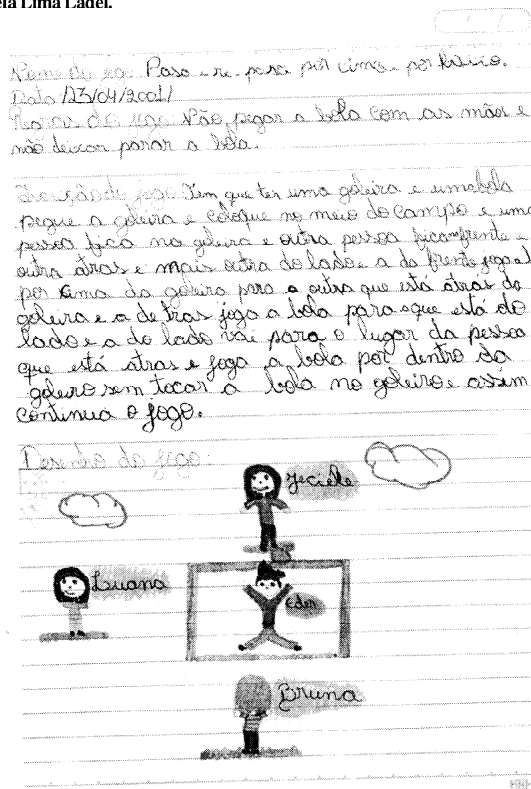 ela Lima Ladel.
Nome do jogo: Pasa e re-pasa por cima e por baixo.
Data 123/04/20011
Regras do jogo Não pegar a bola com as mãos e
não deixar parar a bola.
do jogo: Tem que ter uma goleira e uma bola
pegue a goleira e coloque no meio do campo e uma
pessoa fica na goleira e outra pessoa fica frente e
outra atras e mais outra do lado e a da frente joga a
por cima da goleira para a outra que está atras da
goleira e a de tras joga a bola para oque está do
lado e a do lado vai para o lugar da pessoa
que está atras e joga a bola por dentro da
goleiro sem tocar a bola no goleiro e assim
continua o jogo.
Desenho do jogo:
Jeciele
Luana
Eder
Bruna